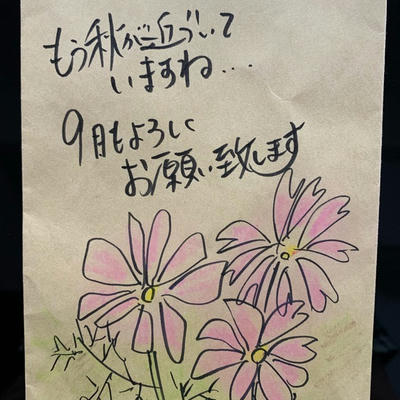 もう秋が近づいて
いますね...
9月もよろしく
お願い致します